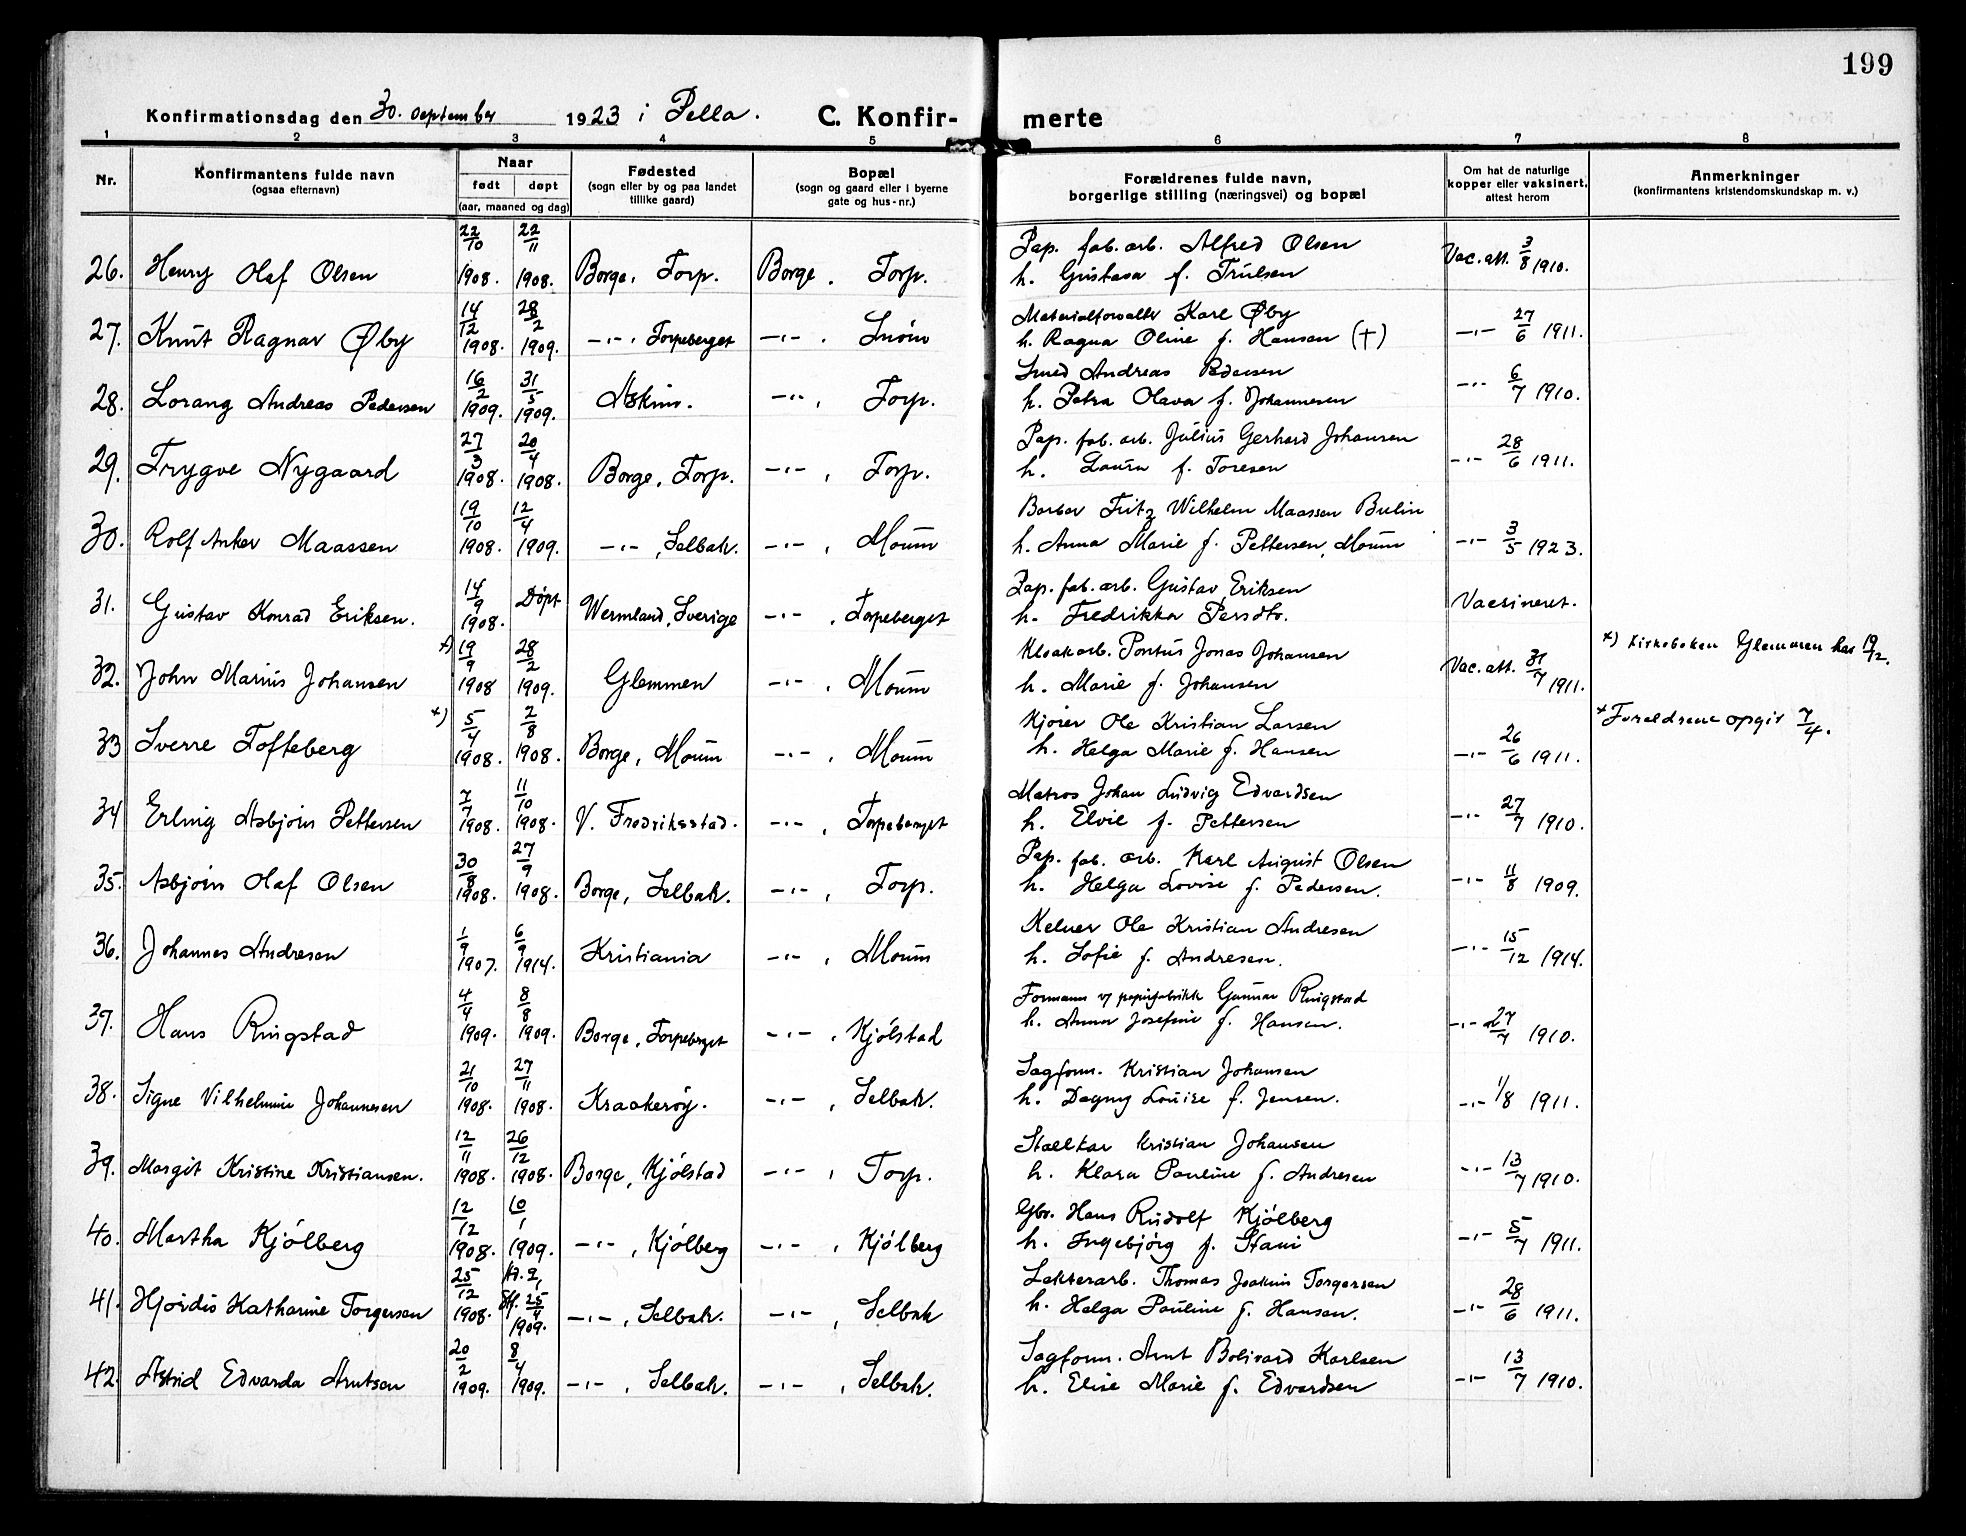 199
Konfirmationsdag den 30. september 1923 i Pella. C. Konfir- merte
1 2 3 4 5 6 7 8
Nr. Konfirmantens fulde navn (ogsaa efternavn) Naar født døpt (aar, maaned og dag) Fødested (sogn eller by og paa landet tillike gaard) Bopæl (sogn og gaard eller i byerne gate og hus-nr.) Forældrenes fulde navn, borgerlige stilling (næringsvei) og bopæl Om hat de naturlige kopper eller vaksinert, attest herom Anmerkninger (konfirmantens kristendomskundskap m. v.)
26. Henry Olaf Olsen 22/10 1908. 22/11 1908. Borge, Torp. Borge. Torp. Pap. fab. arb. Alfred Olsen
h. Gustava f. Trulsen Vac. att. 3/8 1910.
27. Knut Ragnar Øby 14/12 1908. 28/2 1909. —"—, Torpeberget —"—. Materialforvalter Karl Øby
h. Ragna Oline f. Hansen (†) —"— 27/6 1911.
28. Lorang Andreas Pedersen 16/2 1909. 31/5 1909. Askim. —"—, Torp. Smed Andreas Pedersen
h. Petra Olava f. Johannesen —"— 6/7 1910.
29. Trygve Nygaard 27/3 1908. 20/4 1908. Borge, Torp. —"—, Torp. Pap. fab. arb. Julius Gerhard Johansen
h. Laura f. Toresen —"— 28/6 1911.
30. Rolf Anker Maassen 19/10 1908. 12/4 1909. —"—, Selbak. —"—, Moum Barber Fritz Wilhelm Maassen
h. Anna Marie f. Pettersen, Moum —"— 3/5 1923.
31. Gustav Konrad Eriksen. 14/9 1908. Døpt Wermland, Sverige —"—, Torpeberget Pap. fab. arb. Gustav Eriksen
h. Fredrikka Persdtr. Vaccineret.
32. John Marius Johansen x) 19/9 1908 28/2 1909. Glemmen —"—, Moum Kloakarb. Pontus Jonas Johansen
h. Marie f. Johansen Vac. att. 31/7 1911. x) Kirkeboken Glemmen har 19/12.
33 Sverre Tofteberg x) 5/4 1908. 2/8 1908. Borge, Moum —"—, Moum Kjører Ole Kristian Larsen
h. Helga Marie f. Hansen —"— 26/6 1911. x Foreldrene opgir 7/4.
34 Erling Asbjørn Pettersen 7/7 1908. 11/10 1908. V. Fredriksstad. —"—, Torpeberget Matros Johan Ludvig Edvardsen
h. Elvie f. Pettersen —"— 27/7 1910.
35. Asbjørn Olaf Olsen 30/8 1908. 27/9 1908. Borge, Selbak. —"—, Torp. Pap. fab. arb. Karl August Olsen
h. Helga Lovise f. Pedersen. —"— 11/8 1909.
36. Johannes Andresen 1/9 1907. 6/9 1914. Kristiania —"—, Moum Kelner Ole Kristian Andresen
h. Sofie f. Andresen. —"— 15/12 1914.
37. Hans Ringstad 4/4 1909. 8/8 1909. Borge, Torpeberget —"—, Kjølstad Formann v/ papirfabrikk Gunnar Ringstad
h. Anna Josefine f. Hansen. —"— 27/7 1910.
38. Signe Vilhelmine Johannesen 21/10 1908. 27/11 1908. Kraakerøy. —"—, Selbak. Sagform. Kristian Johansen
h. Dagny Louise f. Jensen. —"— 1/8 1911.
39. Margit Kristine Kristiansen. 12/11 1908. 26/12 1908. Borge, Kjølstad —"—, Torp. Stallkar Kristian Johansen
h. Klara Pauline f. Andresen —"— 13/7 1910.
40. Martha Kjølberg 12/12 1908. 10/1 1909. —"—, Kjølberg —"—, Kjølberg Gbr. Hans Rudolf Kjølberg
h. Ingebjørg f. —"— 5/7 1911.
41. Hjørdis Katharine Torgersen 25/12 1908. 25/4 1909. —"—, Selbak. —"—, Selbak Lekterarb. Thomas Joakim Torgersen
h. Helga Pauline f. Hansen. —"— 28/6 1911.
42. Astrid Edvarda Arntsen 20/2 1909. 8/4 1909. —"—, Selbak. —"—, Selbak. Sagform. Arnt Bolivard Karlsen
h. Elise Marie f. Edvardsen —"— 13/7 1910.